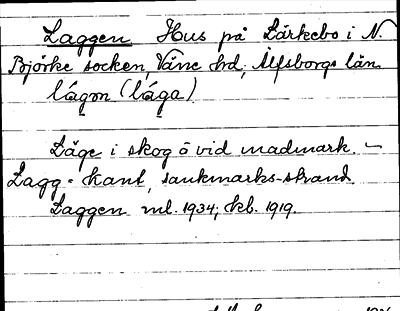 Laggen Hus på Lärkebo i N.
Björke socken, Väne hrd, Älfsborgs län
lágọn (lága)
Läge i skog o vid madmark. –
Lagg = kant, sankmarks-strand.
Laggen ml. 1934; kb. 1919.